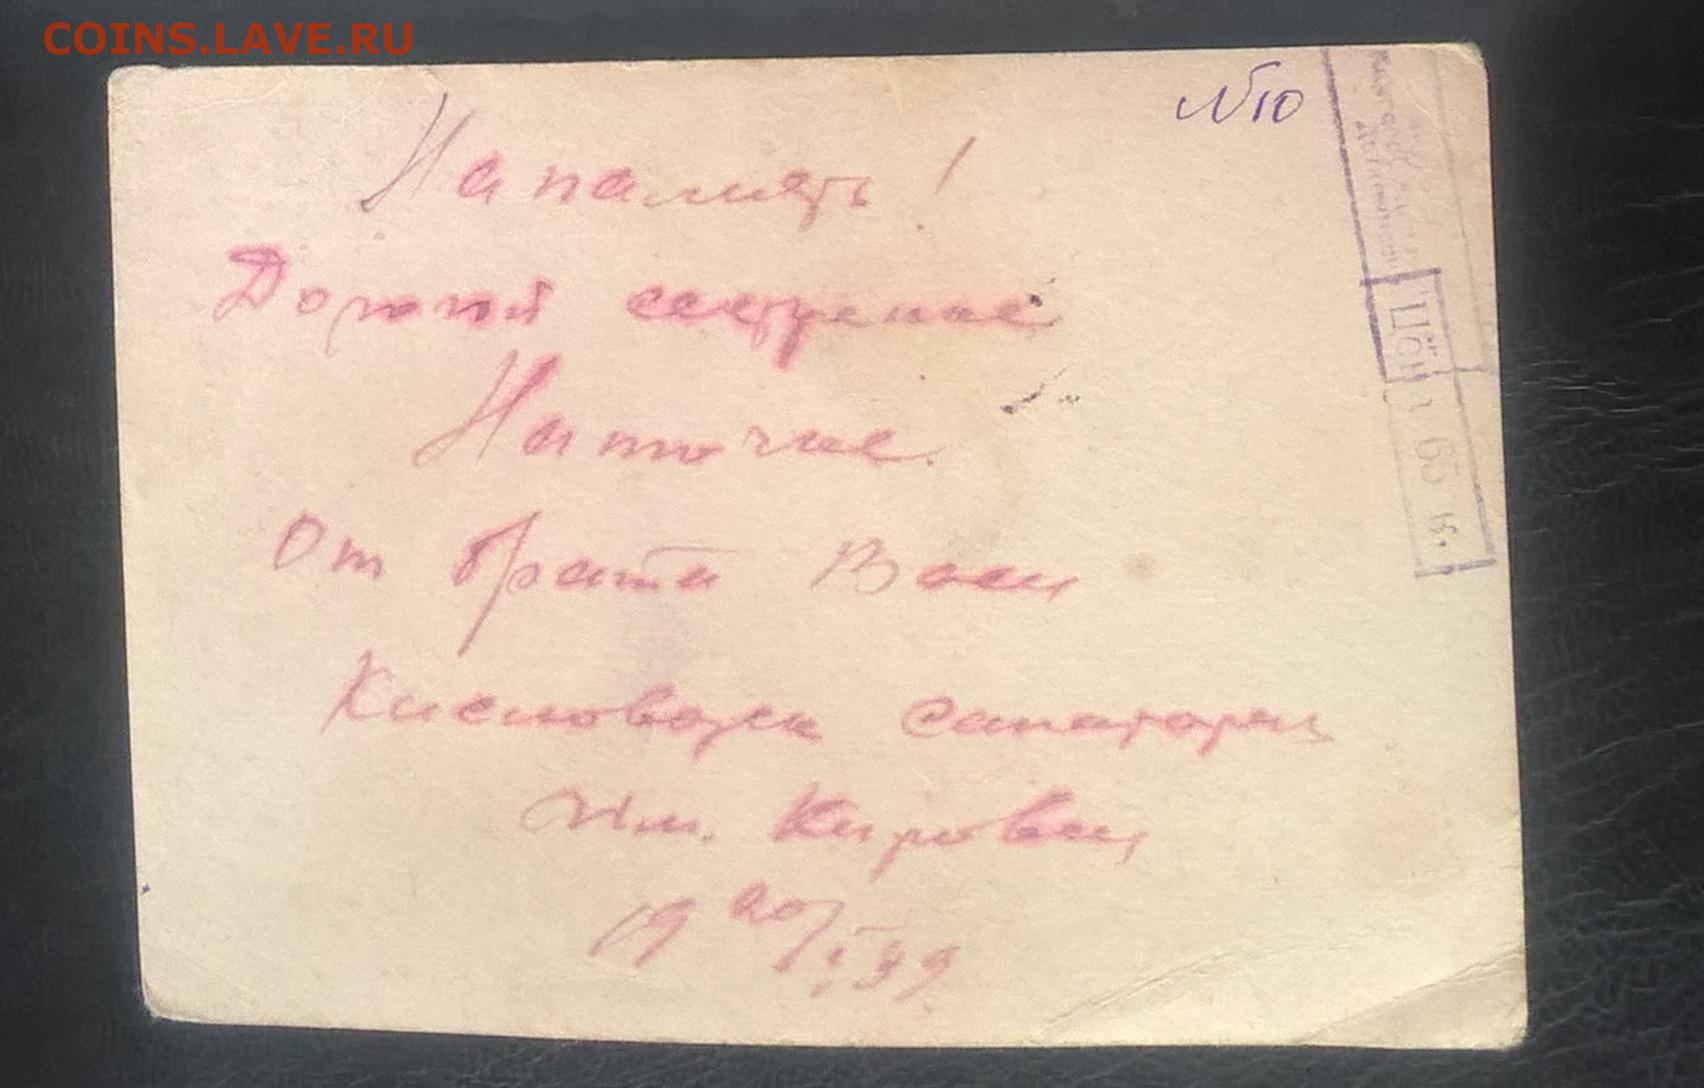 COINS.LAVE.RU
№10
На память!
Дорогой сестренке
Наточке.
От брата Васи
Кисловодск санатории
Им. Кирова
19 20/I 39
Цена 65 к.